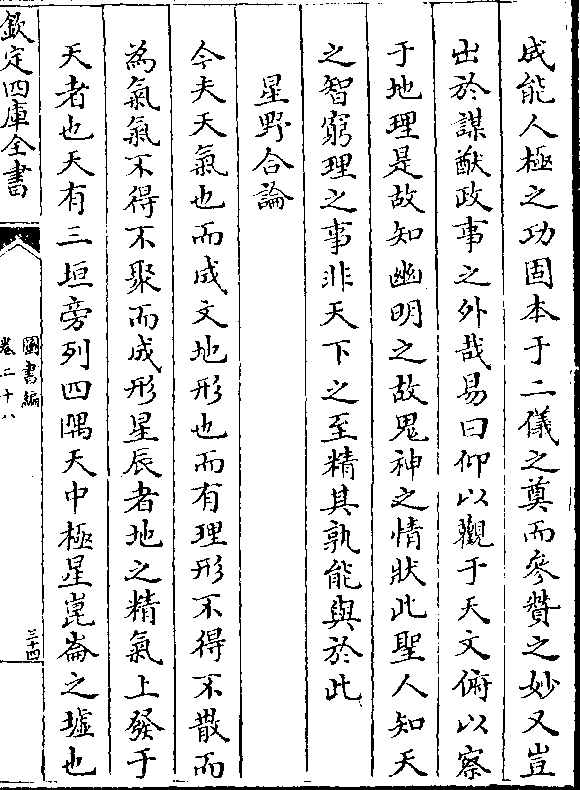 成能人極之功固本于二儀之奠而參贊之妙又豈
出於謀猷政事之外哉易曰仰以觀于天文俯以察
于地理是故知幽明之故鬼神之情狀此聖人知天
之智窮理之事非天下之至精其孰能與於此
星野合論
今夫天氣也而成文地形也而有理形不得不散而
為氣氣不得不聚而成形星辰者地之精氣上發于
天者也天有三垣旁列四隅天中極星崑崙之墟也
欽定四庫全書
圖書編
卷二十八
三十四